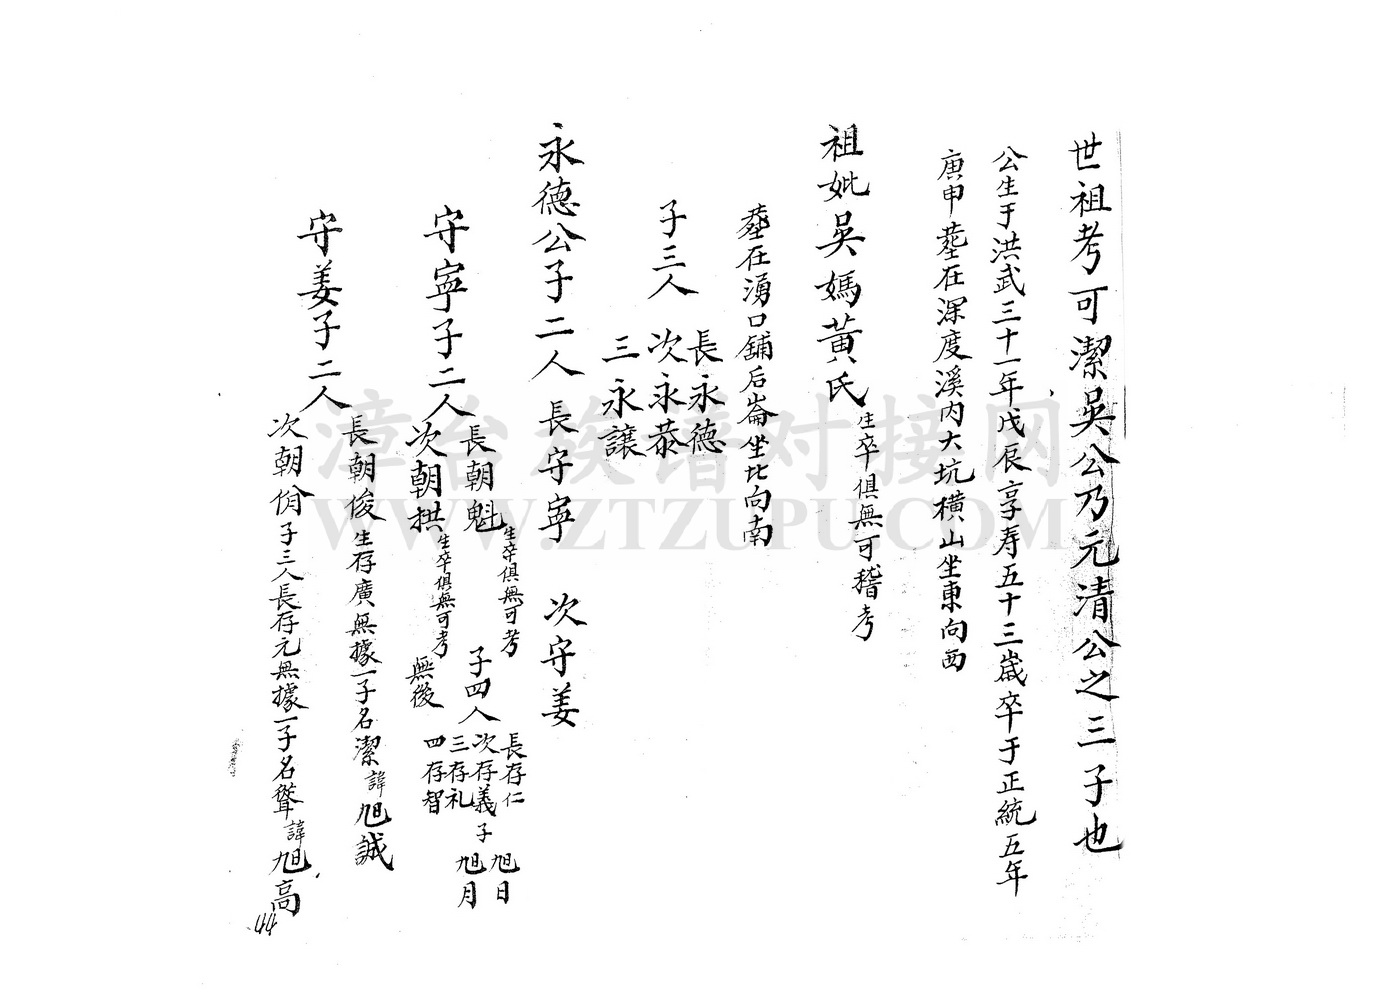 世祖考可潔吳公乃元清公之三子也
公生于洪武三十一年戊辰享寿五十三歲卒于正統五年
庚申塟在深度溪内大坑横山坐東向西
祖妣吳媽黃氏生卒俱無可稽考
塟在湧口舖后崙坐北向南
子三人 長永德
次永恭
三永讓
永德公子二人 長守寧 次守姜
守寧子二人 長朝魁生卒俱無可考 子四人 長存仁
次存義子 旭日
旭月
三存礼
四存智
次朝拱生卒俱無可考 無後
守姜子二人 長朝俊生存廣無據一子名潔諱旭誠
次朝份子三人長存元無據一子名聳諱旭高
44
漳台族谱对接网
WWW.ZTZUPU.COM